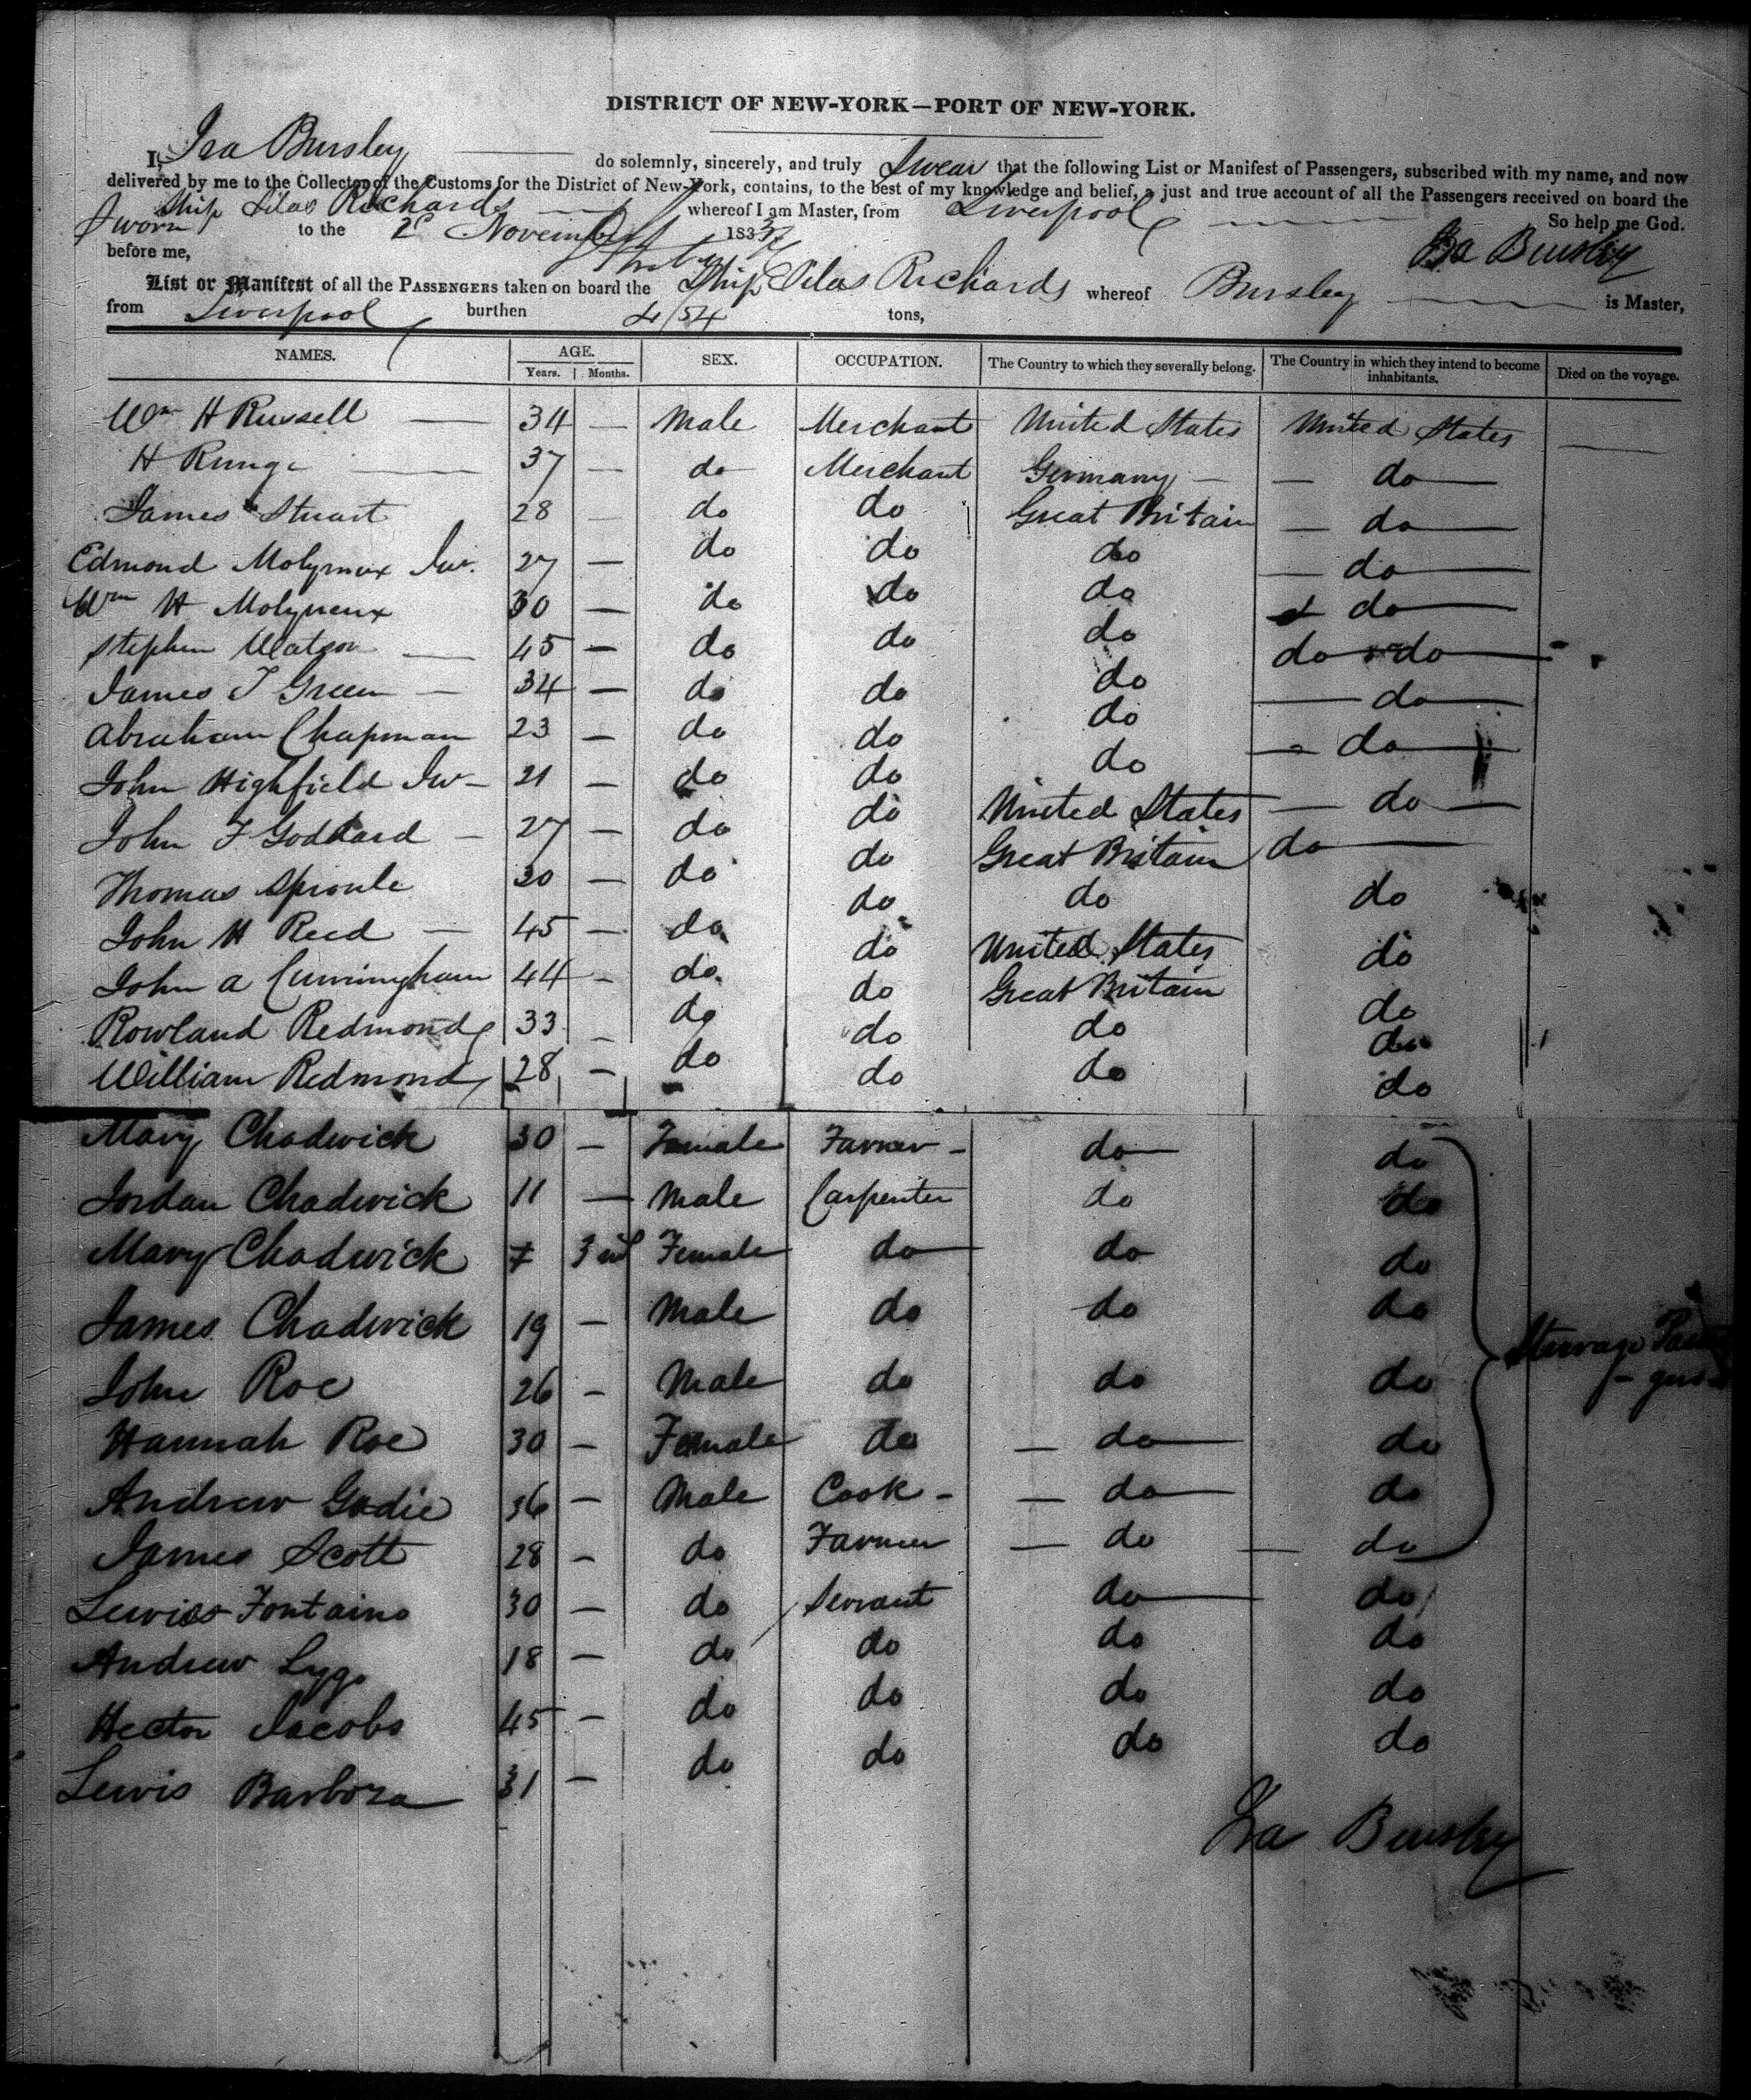 DISTRICT OF NEW-YORK—PORT OF NEW-YORK.
I, Ira Bursley do solemnly, sincerely, and truly Swear that the following List or Manifest of Passengers, subscribed with my name, and now
delivered by me to the Collector of the Customs for the District of New-York, contains, to the best of my knowledge and belief, a just and true account of all the Passengers received on board the
Ship Silas Richards whereof I am Master, from Liverpool So help me God.
Sworn to the 2d November 183
before me, Ira Bursley
List or Manifest of all the PASSENGERS taken on board the Ship Silas Richards whereof Bursley is Master,
from Liverpool burthen 454 tons,
NAMES. AGE. SEX. OCCUPATION. The Country to which they severally belong. The Country in which they intend to become inhabitants. Died on the voyage.
Years. Months.
Wm H Russell — 34 — Male Merchant United States United States —
H Runge — 37 — do Merchant Germany — — do —
James Stuart 28 — do do Great Britain — do —
Edmond Molyneux Jur. 27 — do do do — do —
Wm H Molyneux 30 — do do do do —
Stephen Watson — 45 — do do do do do —
James T Green — 34 — do do do — do —
Abraham Chapman 23 — do do do — do —
John Highfield Jur — 21 — do do do — do —
John F Goddard — 27 — do do United States do —
Thomas Sproule 30 — do do Great Britain do
John H Reed — 45 — do do do do
John A Cunningham 44 — do do United States do
Rowland Redmond 33 — do do Great Britain do
William Redmond 28 — do do do do
do
Mary Chadwick 30 — Female Farmer — do — do
Jordan Chadwick 11 — Male Carpenter do do
Mary Chadwick 7 Female do do do
James Chadwick 19 — Male do do do
John Roe 26 — Male do do do Steerage Passen
- gers
Hannah Roe 30 — Female do — do — do
Andrew Gadie 36 — Male Cook — — do — do
James Scott 28 — do Farmer — do — do
Lewis Fontaine 30 — do Servant do — do
Andrew Lygo 18 — do do do do
Hector Jacobs 45 — do do do do
Lewis Barboza 31 — do do do do
Ira Bursley